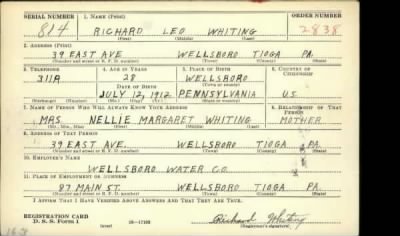 SERIAL NUMBER 1. NAME (Print) ORDER NUMBER
814 RICHARD LEO WHITING 2838
(First) (Middle) (Last)
2. ADDRESS (Print)
39 EAST AVE WELLSBORO TIOGA PA.
(Number and street or R. F. D. number) (Town) (County) (State)
3. TELEPHONE 4. AGE IN YEARS 5. PLACE OF BIRTH 6. COUNTRY OF CITIZENSHIP
311R 28 WELLSBORO
DATE OF BIRTH (Town or county)
JULY 12, 1912 PENNSYLVANIA U.S.
(Exchange) (Number) (Mo.) (Day) (Yr.) (State or country)
7. NAME OF PERSON WHO WILL ALWAYS KNOW YOUR ADDRESS 8. RELATIONSHIP OF THAT PERSON
MRS. NELLIE MARGARET WHITING MOTHER
(Mr., Mrs., Miss) (First) (Middle) (Last)
9. ADDRESS OF THAT PERSON
39 EAST AVE. WELLSBORO TIOGA PA.
(Number and street or R. F. D. number) (Town) (County) (State)
10. EMPLOYER'S NAME
WELLSBORO WATER CO.
11. PLACE OF EMPLOYMENT OR BUSINESS
97 MAIN ST. WELLSBORO TIOGA PA.
(Number and street or R. F. D. number) (Town) (County) (State)
I AFFIRM THAT I HAVE VERIFIED ABOVE ANSWERS AND THAT THEY ARE TRUE.
REGISTRATION CARD
D. S. S. Form 1 16—17105 Richard Whiting
(over) (Registrant's signature)